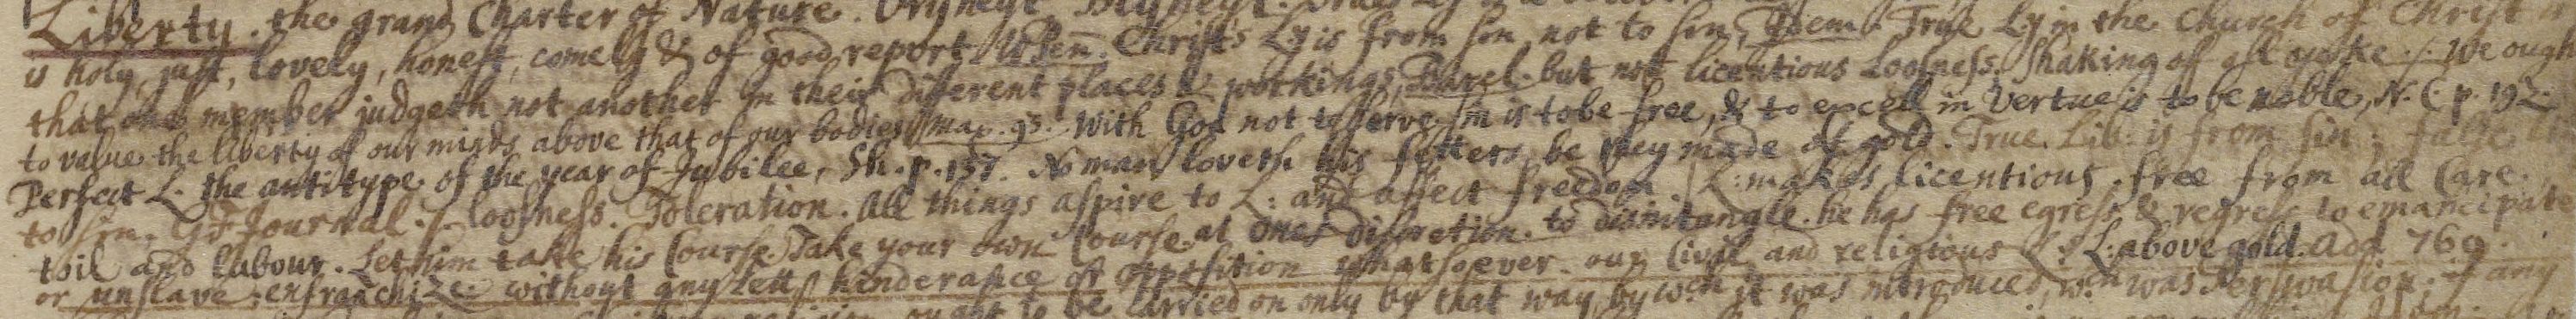 Liberty. the grand Charter of Nature.
is holy, just, lovely, honest, comely & of good report. Chrift's Ly is from sin, not to sin, Poem. True Ly in the Church of Christ
that one member judgeth not another in their different places & workings, Barcl. but not licentious Loosness. Shaking of all yoke. We ought
to value the liberty of our minds above that of our bodies, max. 93. With God not to serve sin is to be free, & to excell in Vertue is to be noble, N. C. p. 192.
Perfect L. the antitype of the year of Jubilee, Sh. p. 137. No man loveth his fetters, be they made of gold. True Lib: is from sin; false
to sin. GF Journal. Loosness. Toleration. All things aspire to L: and affect freedom L: makes licentious. free from all Care.
toil and labour. Let him take his Course. Take your own Course. at ones discretion. to he has free egress & regress to emancipate
or unslave: enfranchize. without any Lett, hinderance or opposition whatsoever. our Civil and religious L: L: above gold. add 769.
ought to be Carried on only by that way, by wch it was introduced, wch was Perswasion. if any